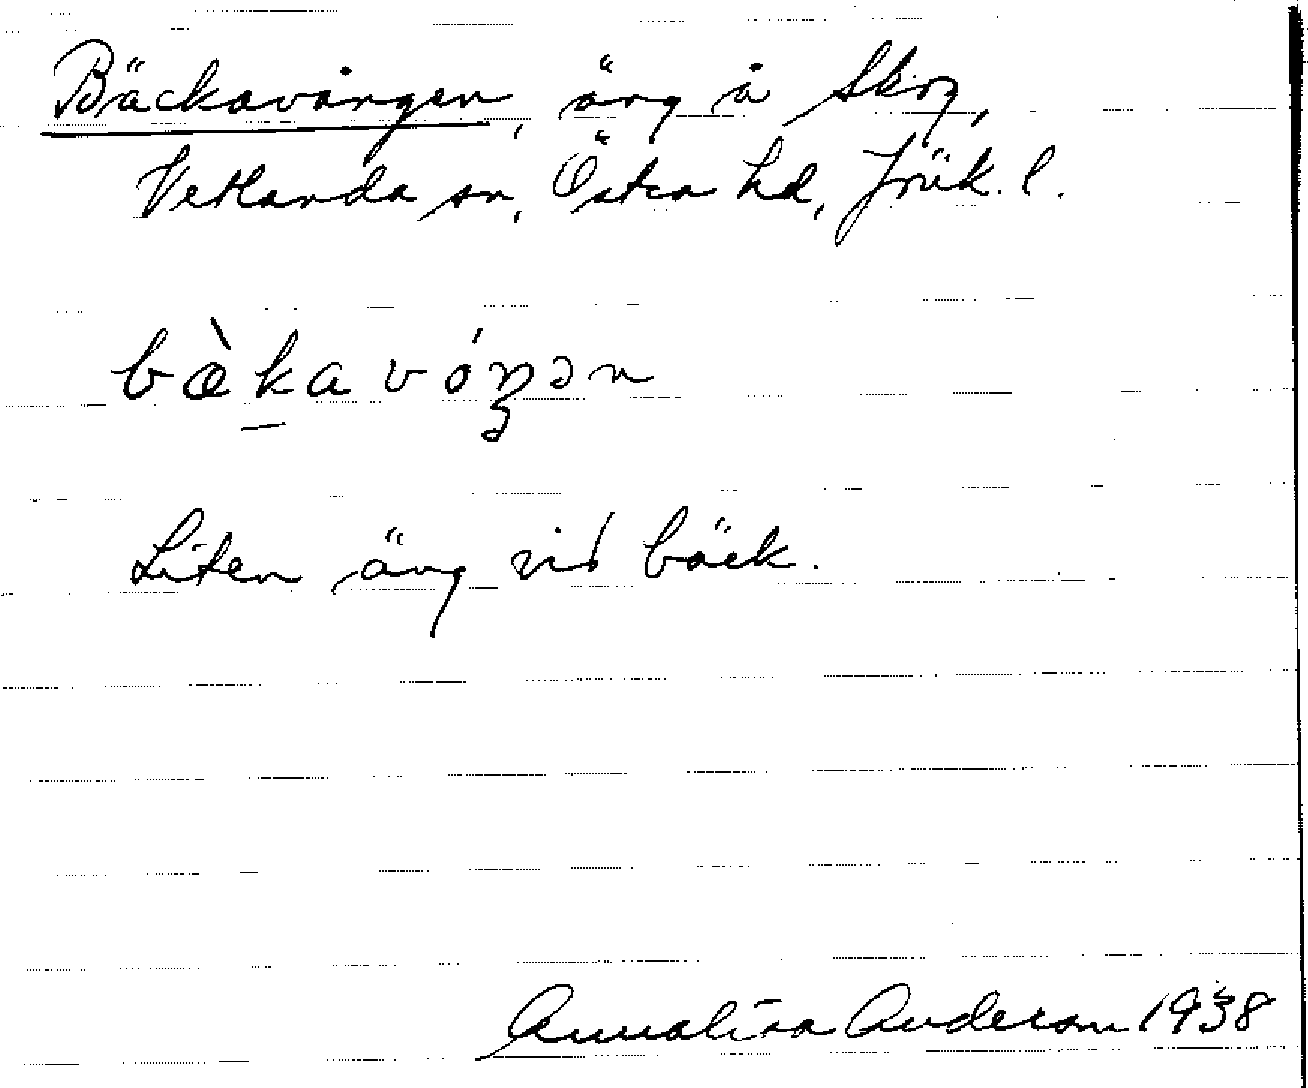 Bäckavången, äng å Skog,
Vetlanda sn, Östra hd, Jnök. l.
bæ̀kavóŋən
Liten äng vid bäck.
Annalisa Anderson 1938